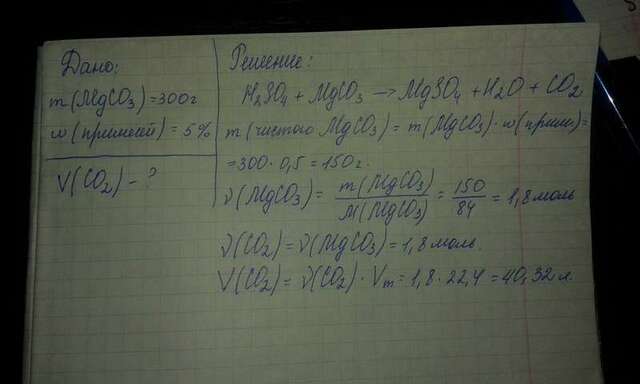 Дано:
m(MgCO3)=300г
w(примесей)=5%
V(CO2)-?
Решение:
H2SO4 + MgCO3 → MgSO4 + H2O + CO2
m(чистого MgCO3) = m(MgCO3)·w(прим)=
=300·0,5=150г.
ν(MgCO3) = m(MgCO3)/M(MgCO3) = 150/84 = 1,8 моль
ν(CO2)=ν(MgCO3)=1,8 моль.
V(CO2)= ν(CO2)·Vm=1,8·22,4=40,32 л.